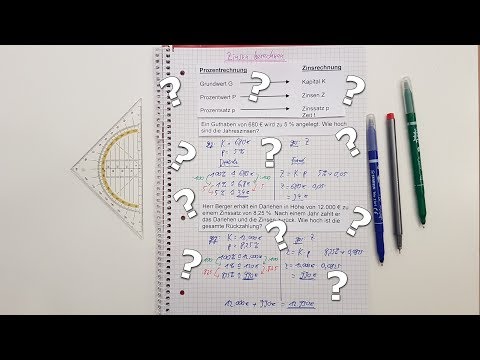 Zinsen berechnen
Prozentrechnung Zinsrechnung
Grundwert G Kapital K
Prozentwert P Zinsen Z
Prozentsatz p Zinssatz p
Zeit t
Ein Guthaben von 680 € wird zu 5 % angelegt. Wie hoch
sind die Jahreszinsen?
geg K = 680 € ges Z
p = 5%
Tabelle Formel
100% ≙ 680 € Z = K · p 5% = 0,05
1% ≙ 6,8 € Z = 680 € · 0,05
5% ≙ 34 € = 34 €
Herr Berger erhält ein Darlehen in Höhe von 12.000 € zu
einem Zinssatz von 8,25 %. Nach einem Jahr zahlt er
das Darlehen und die Zinsen zurück. Wie hoch ist die
gesamte Rückzahlung?
geg K = 12.000 € ges Z
p = 8,25%
100% ≙ 12.000 € Z = K · p 8,25% = 0,0825
1% ≙ 120 € Z = 12.000 € · 0,0825
8,25% ≙ 990 € = 990 €
12.000 € + 990 € = 12.990 €